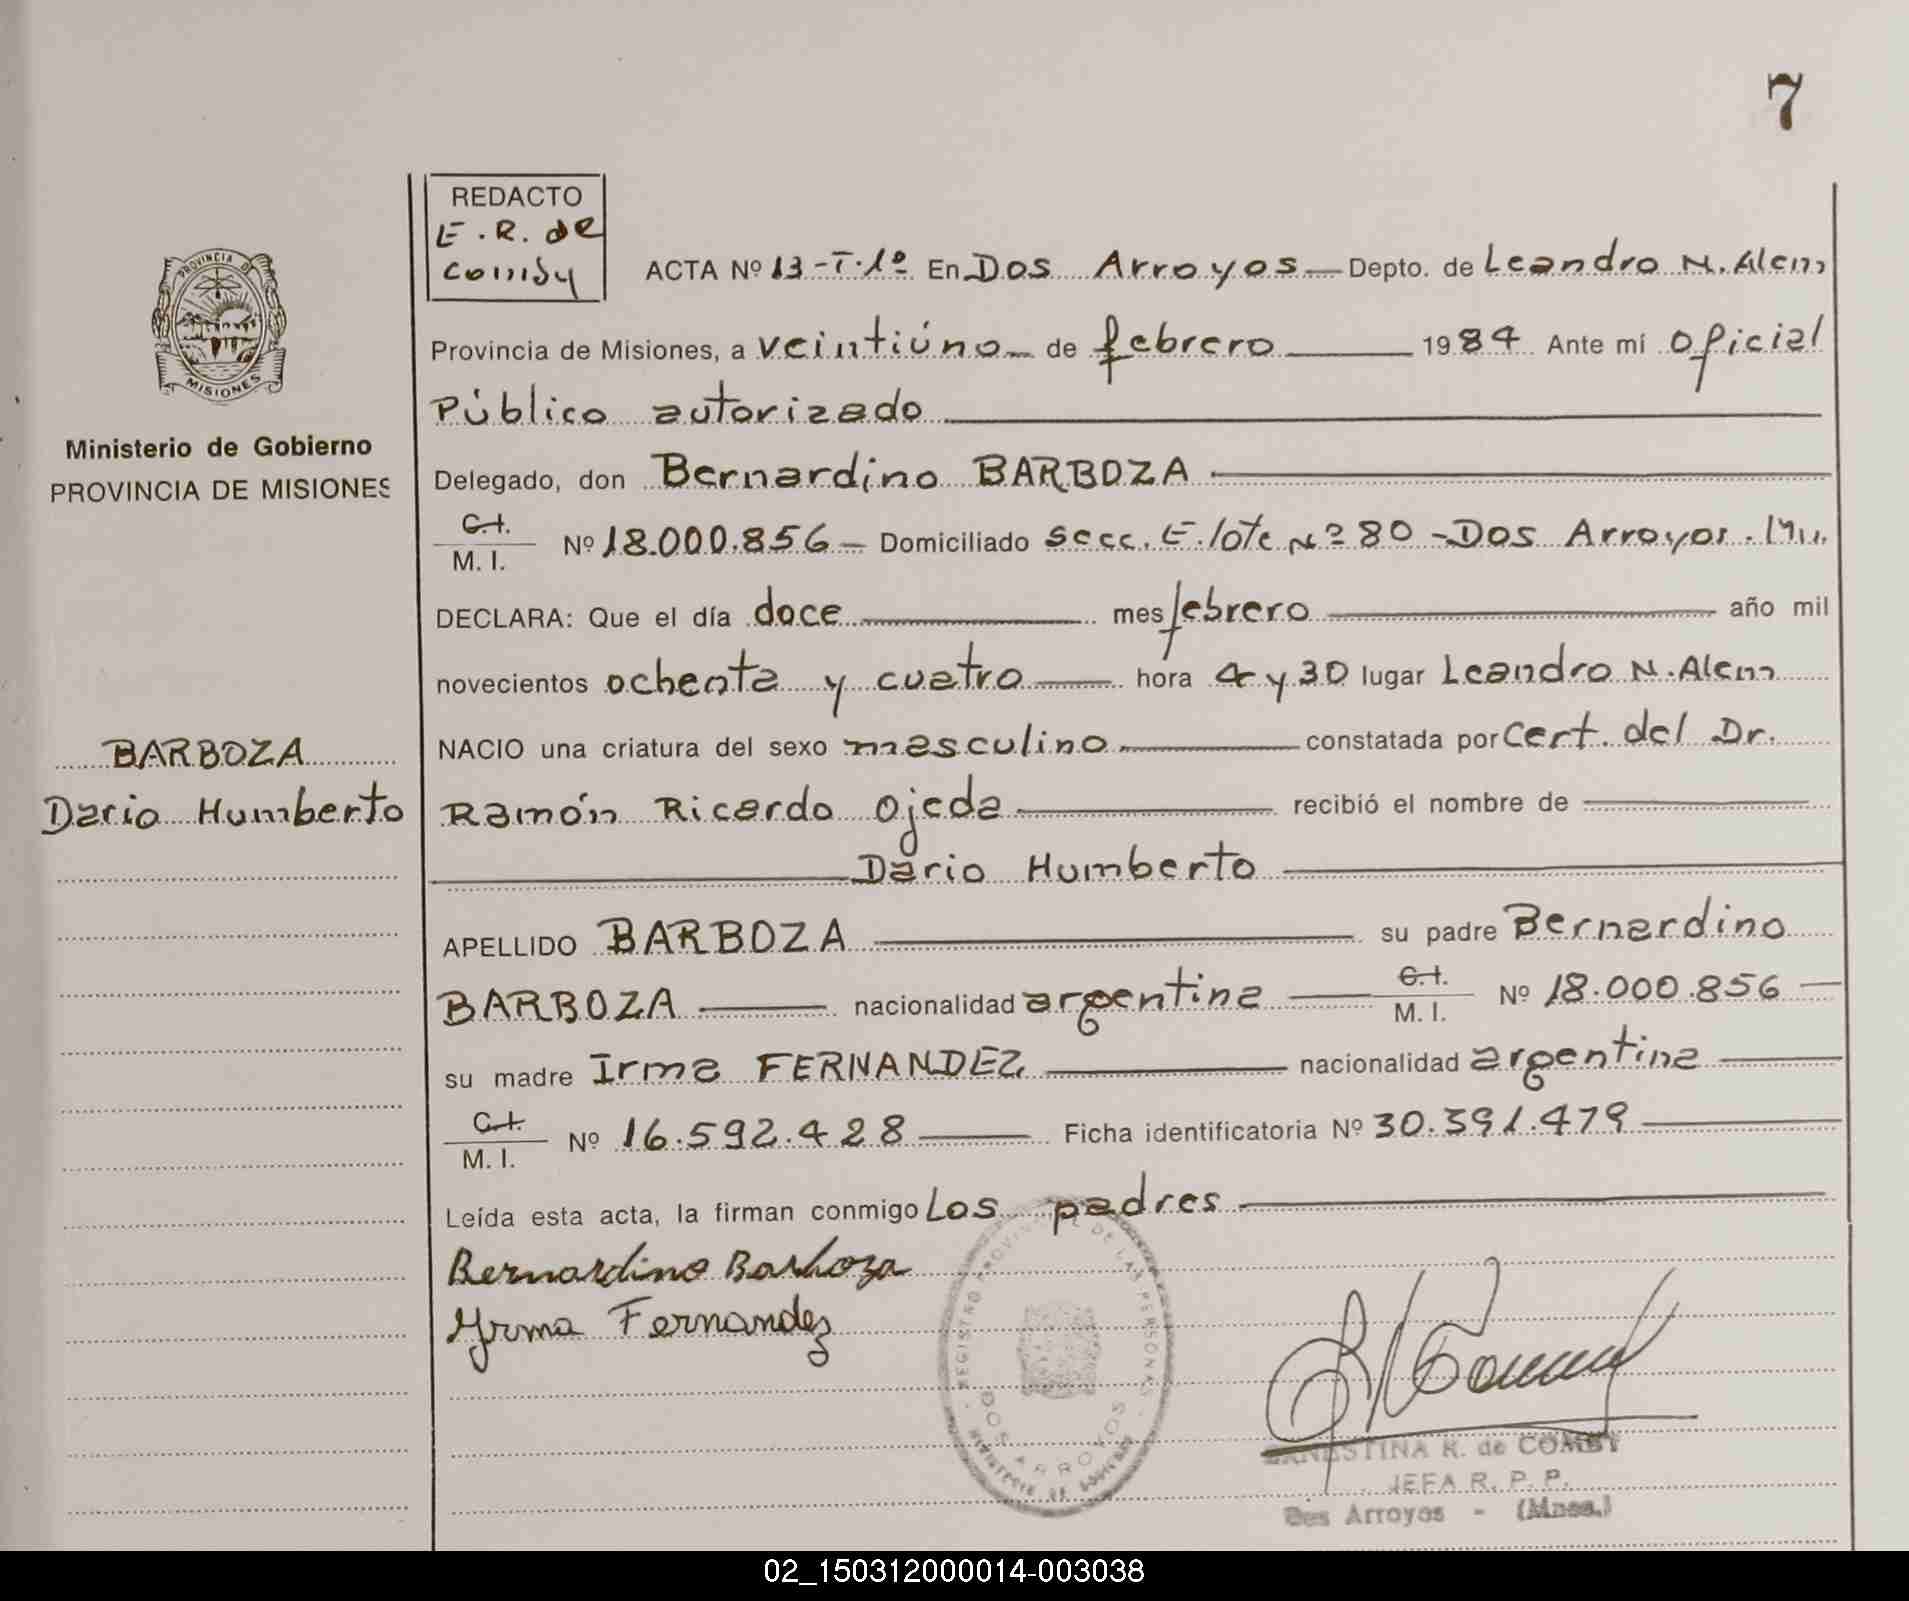 7
REDACTO
E. R. de
Comby
ACTA Nº 13-T.1º En Dos Arroyos Depto. de Leandro N. Alem
Provincia de Misiones, a veintiúno de febrero 1984 Ante mí oficial
Público autorizado
Delegado, don Bernardino BARBOZA
C.I.
M. I. Nº 18.000.856 Domiciliado Secc. E. lote Nº 80 - Dos Arroyos. Mis.
DECLARA: Que el día doce mes febrero año mil
novecientos ochenta y cuatro hora 4 y 30 lugar Leandro N. Alem
NACIO una criatura del sexo masculino constatada por Cert. del Dr.
Ramón Ricardo Ojeda recibió el nombre de
Dario Humberto
APELLIDO BARBOZA su padre Bernardino
BARBOZA nacionalidad argentina C.I. M. I. Nº 18.000.856
su madre Irma FERNANDEZ nacionalidad argentina
C.I.
M. I. Nº 16.592.428 Ficha identificatoria Nº 30.391.479
Leída esta acta, la firman conmigo Los padres
Bernardino Barboza
Yrma Fernandez
PROVINCIA DE
MISIONES
Ministerio de Gobierno
PROVINCIA DE MISIONES
BARBOZA
Dario Humberto
REGISTRO PROVINCIAL DE LAS PERSONAS
DOS ARROYOS
MINISTERIO DE GOBIERNO
ERNESTINA R. de COMBY
JEFA R. P. P.
Dos Arroyos - (Mnes.)
02_150312000014-003038